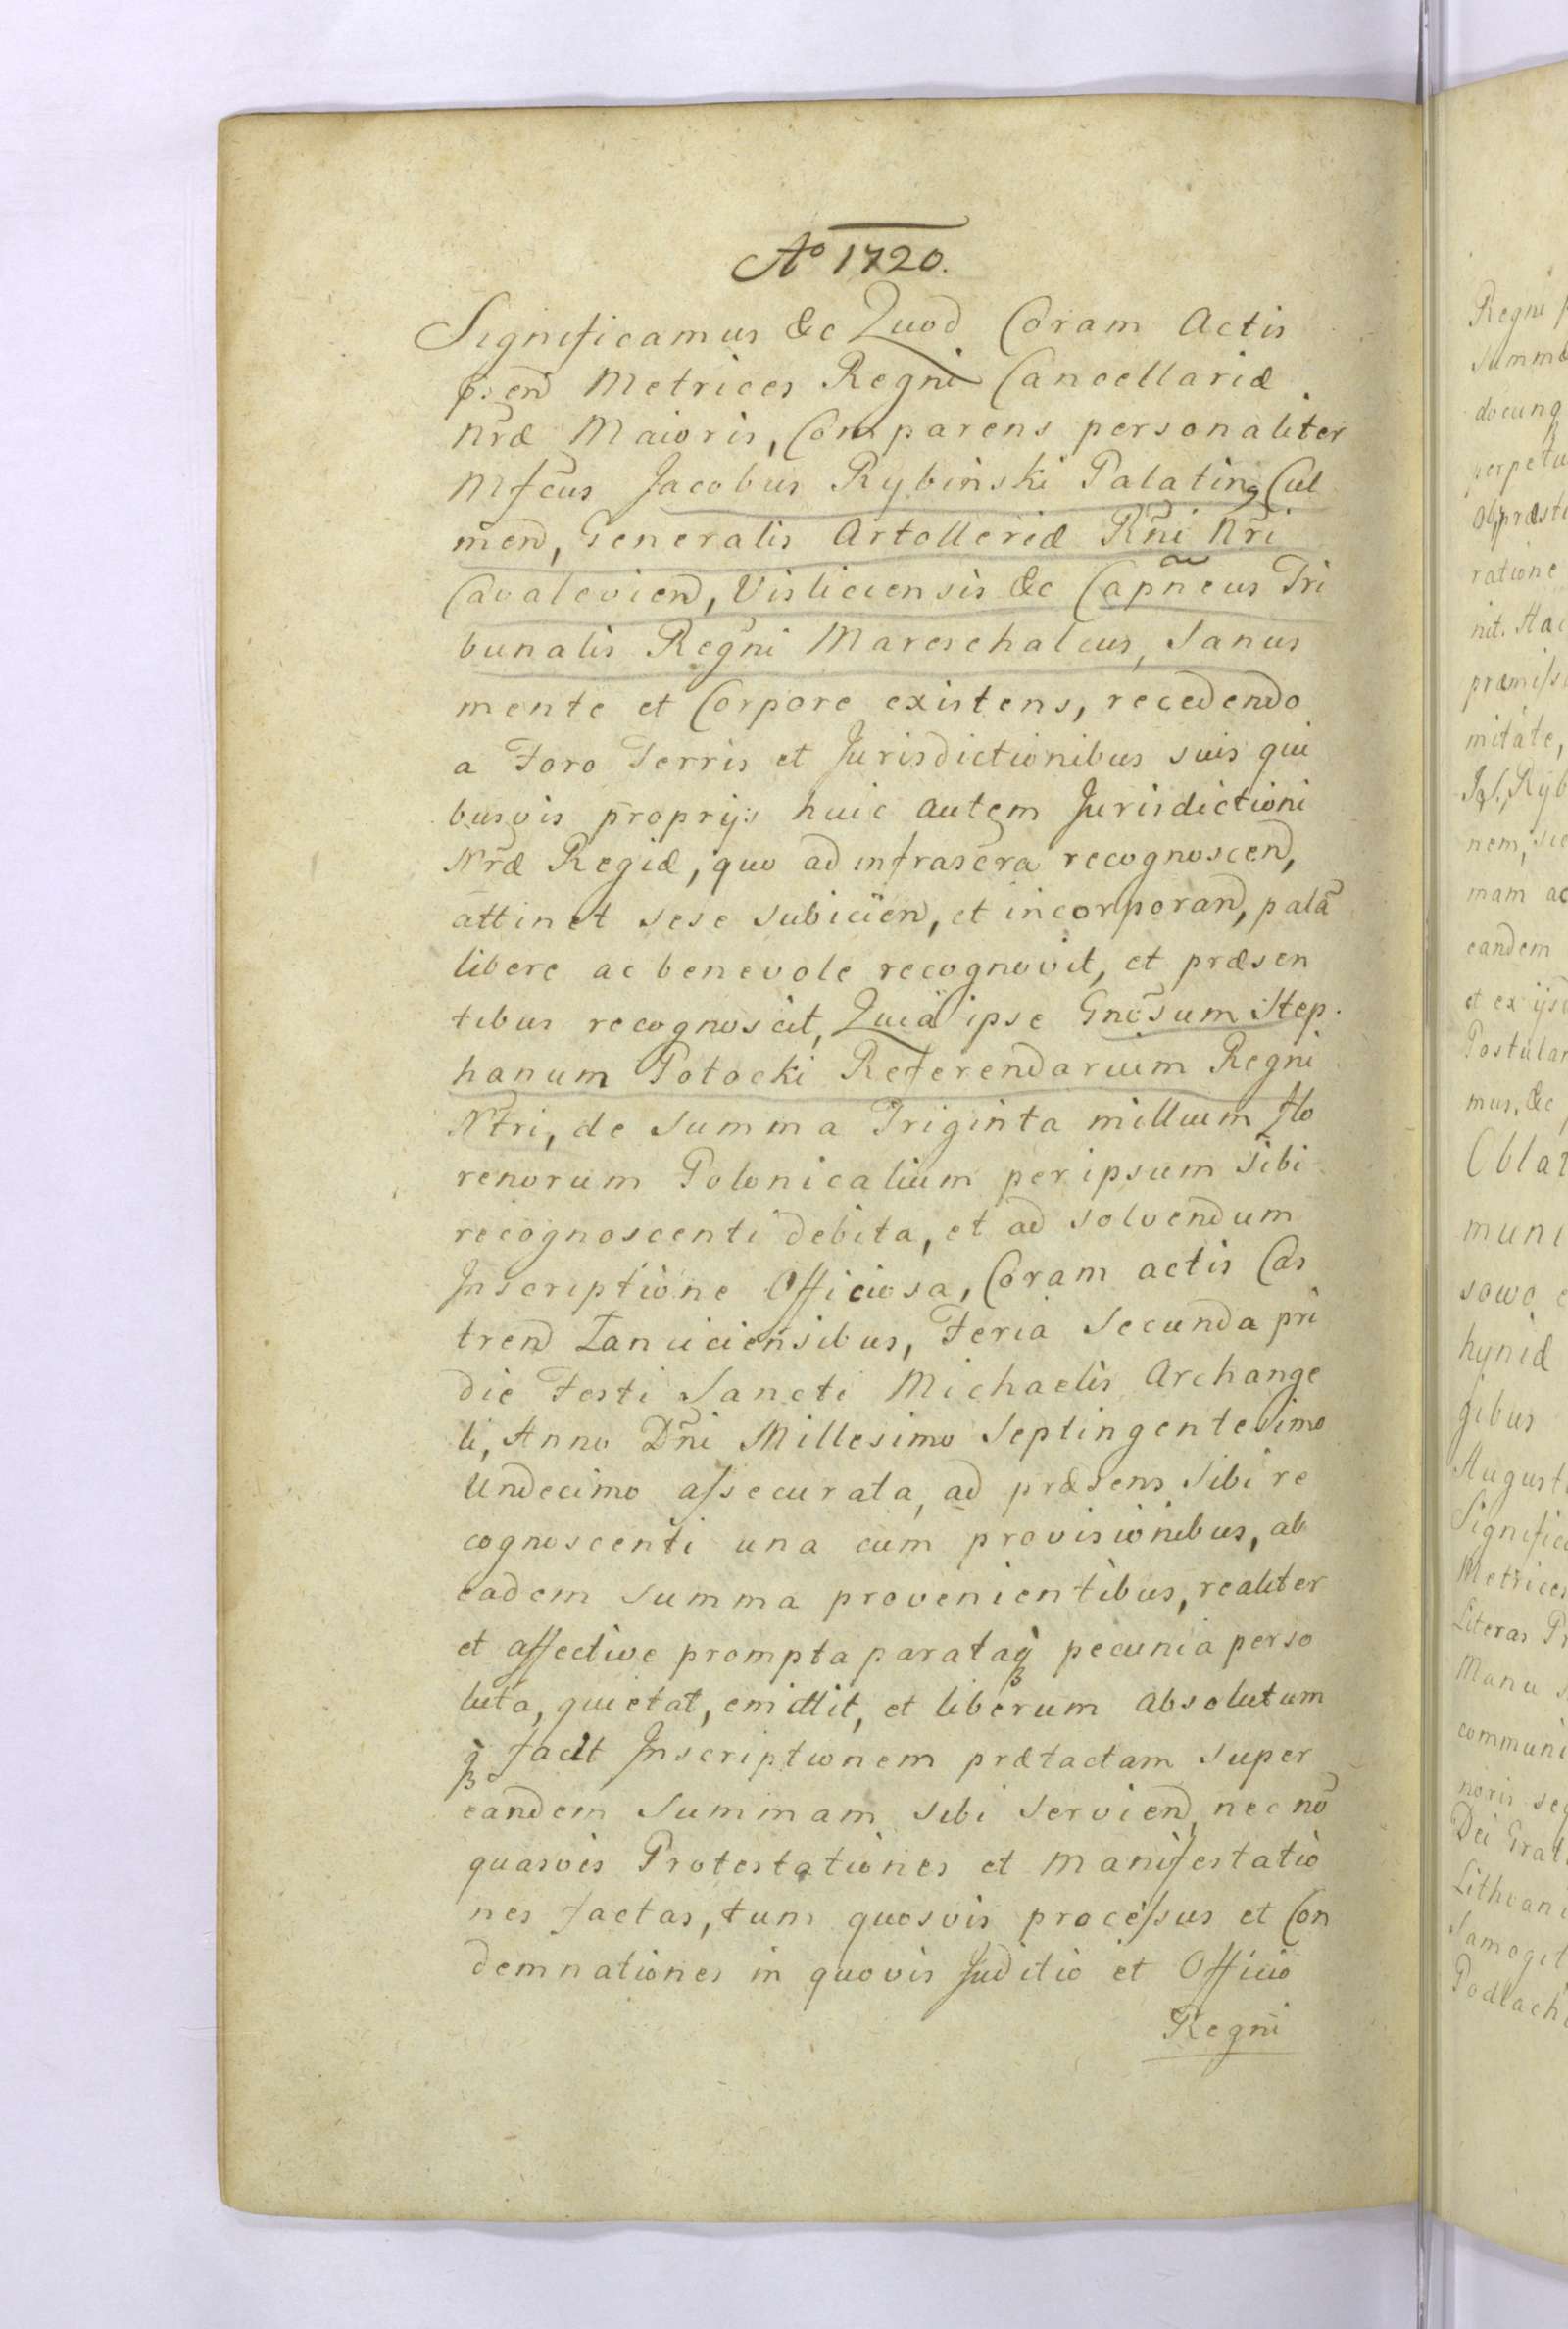 Aº 1720.
Significamus &c Quod Coram Actis
p:end Metrices Regni Cancellariæ
nr̃æ Maioris, Comparens personaliter
Mfcus Jacobus Rybinski Palatinꝯ Cul
mend, Generalis Artolleriæ Rñi Nr̃i
Cavaleviend, Visliciensis &c Capñeus Tri
bunalis Regni Mareschalcus, Sanus
mente et Corpore existens, recedendo
a Foro Terris et Jurisdictionibus suis qui
busvis proprys huic autem Jurisdictioni
Nr̃æ Regiæ, quo ad infrascr̃a recognoscend,
attinet sese subiciend, et incorporand, palã
libere ac benevole recognovit, et præsen
tibus recognoscit, Quia ipse Gnõsum Step.
hanum Potocki Referendarium Regni
Ntri, de Summa Triginta millium flo
renorum Polonicalium per ipsum Sibi
recognoscenti debita, et ad solvendum
Inscriptione Officiosa, Coram actis Cas
trend Lanciciensibus, Feria Secunda pri
die Festi Sancti Michaelis Archange
li, Anno Dñi Millesimo Septingentesimo
Undecimo assecurata, ad præsens Sibi re
cognoscenti una cum provisionibus, ab
eadem Summa provenientibus, realiter
et affective prompta parataq̃ pecunia perso
luta, quietat, emittit, et liberum absolutum
q̃ facit Inscriptionem prætactam super
eandem Summam sibi serviend, nec nõ
quasvis Protestationes et manifestatio
nes factas, tum quosvis processus et Con
demnationes in quovis Juditio et Officio
Regni
Regni
Summ
docunq
perpetu
ob præsti
ratione
nit. Hac
præmiss
mitate,
Ryb
nem, sic
mam ac
eandem
et ex ijsd
Postular
mus, &c
Oblat
muni
sowo
hyniæ
gibus
August
Signific
Metrices
Literas Pr
Manu s
communi
noris seq
Dei Grat
Lithvani
Samogit
Podlach